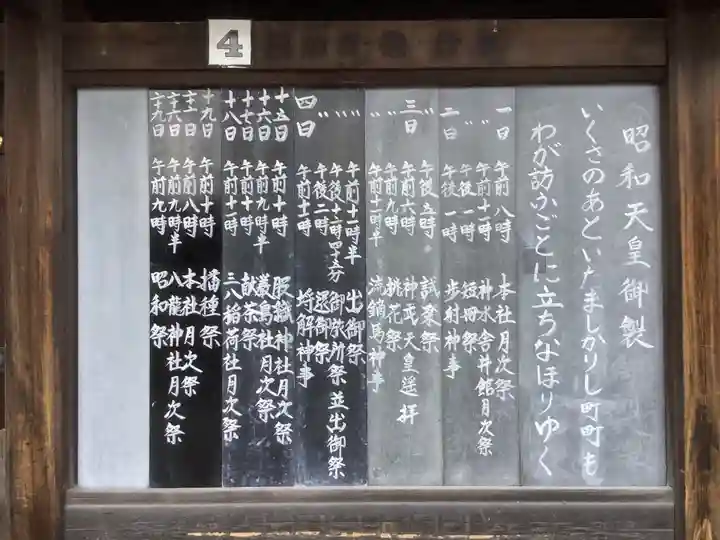 4
昭和天皇御製
いくさのあといたましかりし町町も
わが訪ふごとに立ちなほりゆく
一日 午前八時 本社月次祭
〃 午前十一時 神水舎井館月次祭
〃 午後一時 短冊祭
二日 午後一時 歩射神事
〃 午後五時 試楽祭
三日 午前六時 神武天皇遥拝
〃 午前九時 桃花祭
〃 午前十一時半 流鏑馬神事
〃 午前十一時半 出御祭
〃 午後十二時四十五分 御旅所祭並出御祭
〃 午後二時 還御祭
四日 午前十一時 埒解神事
十五日 午前十時 服織神社月次祭
十六日 午前九時半 養鳥社月次祭
十七日 午前十時 献茶祭
十八日 午前十一時 三八稲荷社月次祭
十九日 午前十一時 播種祭
午前八時 本社月次祭
午前九時半 八龍神社月次祭
午前九時 昭和祭